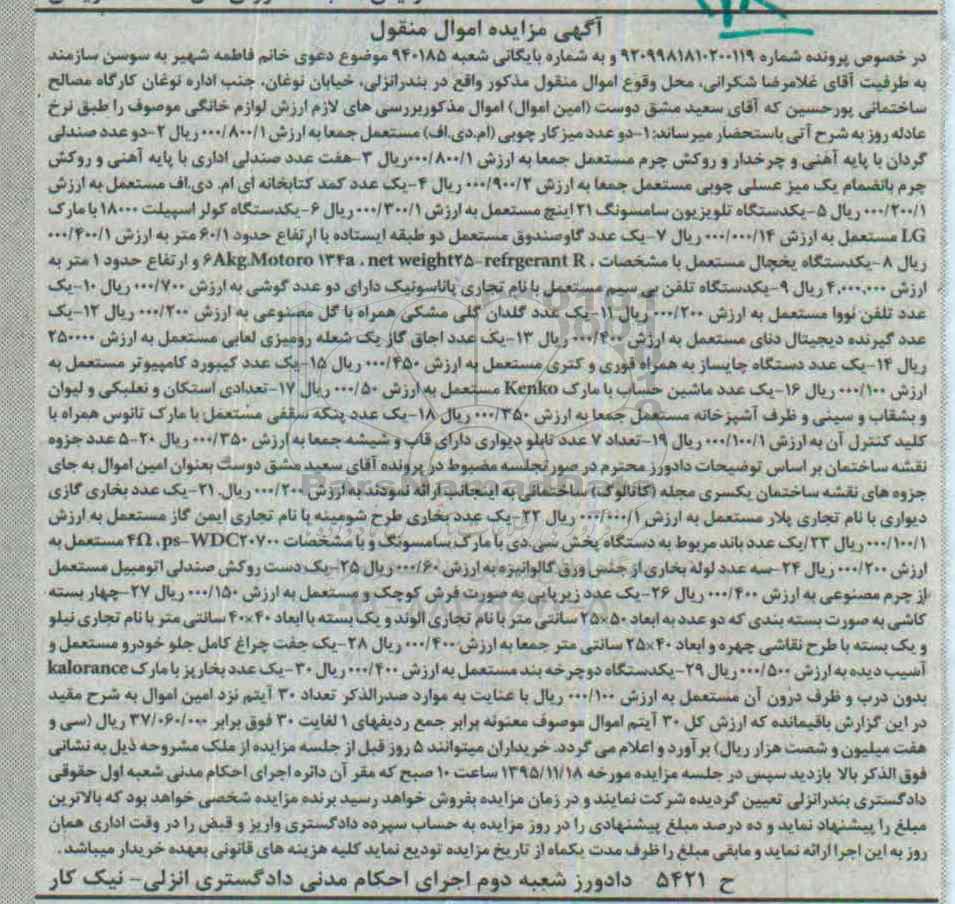 آگهی مزایده اموال منقول
در خصوص پرونده شماره ۹۲۰۹۹۸۱۸۱۰۲۰۰۱۱۹ و به شماره بایگانی شعبه ۹۴۰۱۸۵ موضوع دعوی خانم فاطمه شهیر به سوسن سازمند
به طرفیت آقای غلامرضا شکرانی، محل وقوع اموال منقول مذکور واقع در بندرانزلی، خیابان نوغان، جنب اداره نوغان کارگاه مصالح
ساختمانی پورحسین که آقای سعید مشق دوست (امین اموال) اموال مذکوربررسی های لازم ارزش لوازم خانگی موصوف را طبق نرخ
عادله روز به شرح آتی باستحضار میرساند: ۱-دو عدد میز کار چوبی (ام.دی.اف) مستعمل جمعا به ارزش ۰۰۰/۸۰۰/۱ ریال ۲-دو عدد صندلی
گردان با پایه آهنی و چرخدار و روکش چرم مستعمل جمعا به ارزش ۰۰۰/۸۰۰/۱ریال ۳-هفت عدد صندلی اداری با پایه آهنی و روکش
چرم بانضمام یک میز عسلی چوبی مستعمل جمعا به ارزش ۰۰۰/۹۰۰/۲ ریال ۴-یک عدد کمد کتابخانه ای ام. دی.اف مستعمل به ارزش
۰۰۰/۲۰۰/۱ ریال ۵-یکدستگاه تلویزیون سامسونگ ۲۱ اینچ مستعمل به ارزش ۰۰۰/۳۰۰/۱ ریال ۶-یکدستگاه کولر اسپیلت ۱۸۰۰۰ با مارک
LG مستعمل به ارزش ۰۰۰/۰۰۰/۱۴ ریال ۷-یک عدد گاوصندوق مستعمل دو طبقه ایستاده با ارتفاع حدود ۶۰/۱ متر به ارزش ۰۰۰/۴۰۰/۱
ریال ۸-یکدستگاه یخچال مستعمل با مشخصات ۶Akg.Motoro ۱۳۴a ، net weight۲۵-refrgerant R ، و ارتفاع حدود ۱ متر به
ارزش ۴,۰۰۰,۰۰۰ ریال ۹-یکدستگاه تلفن بی سیم مستعمل با نام تجاری پاناسونیک دارای دو عدد گوشی به ارزش ۰۰۰/۷۰۰ ریال ۱۰-یک
عدد تلفن نووا مستعمل به ارزش ۰۰۰/۲۰۰ ریال ۱۱-یک عدد گلدان گلی مشکی همراه با گل مصنوعی به ارزش ۰۰۰/۲۰۰ ریال ۱۲-یک
عدد گیرنده دیجیتال دنای مستعمل به ارزش ۰۰۰/۴۰۰ ریال ۱۳-یک عدد اجاق گاز یک شعله رومیزی لعابی مستعمل به ارزش ۲۵۰۰۰۰
ریال ۱۴-یک عدد دستگاه چایساز به همراه قوری و کتری مستعمل به ارزش ۰۰۰/۴۵۰ ریال ۱۵-یک عدد کیبورد کامپیوتر مستعمل به
ارزش ۰۰۰/۱۰۰ ریال ۱۶-یک عدد ماشین حساب با مارک Kenko مستعمل به ارزش ۰۰۰/۵۰ ریال ۱۷-تعدادی استکان و نعلبکی و لیوان
و بشقاب و سینی و ظرف آشپزخانه مستعمل جمعا به ارزش ۰۰۰/۳۵۰ ریال ۱۸-یک عدد پنکه سقفی مستعمل با مارک تانوس همراه با
کلید کنترل آن به ارزش ۰۰۰/۱۰۰/۱ ریال ۱۹-تعداد ۷ عدد تابلو دیواری دارای قاب و شیشه جمعا به ارزش ۰۰۰/۳۵۰ ریال ۲۰-۵ عدد جزوه
نقشه ساختمان بر اساس توضیحات دادورز محترم در صورتجلسه مضبوط در پرونده آقای سعید مشق دوست بعنوان امین اموال به جای
جزوه های نقشه ساختمان یکسری مجله (کاتالوگ) ساختمانی به اینجانب ارائه نمودند به ارزش ۰۰۰/۲۰۰ ریال. ۲۱-یک عدد بخاری گازی
دیواری با نام تجاری پلار مستعمل به ارزش ۰۰۰/۰۰۰/۱ ریال ۲۲-یک عدد بخاری طرح شومینه با نام تجاری ایمن گاز مستعمل به ارزش
۰۰۰/۱۰۰/۱ ریال ۲۳/یک عدد باند مربوط به دستگاه پخش سی.دی با مارک سامسونگ و با مشخصات ۴Ω ،ps-WDC۲۰۷۰۰ مستعمل به
ارزش ۰۰۰/۲۰۰ ریال ۲۴-سه عدد لوله بخاری از جنس ورق گالوانیزه به ارزش ۰۰۰/۶۰ ریال ۲۵-یک دست روکش صندلی اتومبیل مستعمل
از چرم مصنوعی به ارزش ۰۰۰/۴۰۰ ریال ۲۶-یک عدد زیرپایی به صورت فرش کوچک و مستعمل به ارزش ۰۰۰/۱۵۰ ریال ۲۷-چهار بسته
کاشی به صورت بسته بندی که دو عدد به ابعاد ۵۰×۲۵ سانتی متر با نام تجاری الوند و یک بسته با ابعاد ۴۰×۴۰ سانتی متر با نام تجاری نیلو
و یک بسته با طرح نقاشی چهره و ابعاد ۴۰×۲۵ سانتی متر جمعا به ارزش ۰۰۰/۴۰۰ ریال ۲۸-یک جفت چراغ کامل جلو خودرو مستعمل و
آسیب دیده به ارزش ۰۰۰/۵۰۰ ریال ۲۹-یکدستگاه دوچرخه بند مستعمل به ارزش ۰۰۰/۴۰۰ ریال ۳۰-یک عدد بخارپز با مارک kalorance
بدون درب و ظرف درون آن مستعمل به ارزش ۰۰۰/۱۰۰ ریال با عنایت به موارد صدرالذکر تعداد ۳۰ آیتم نزد امین اموال به شرح مقید
در این گزارش باقیمانده که ارزش کل ۳۰ آیتم اموال موصوف معنونه برابر جمع ردیفهای ۱ لغایت ۳۰ فوق برابر ۳۷/۰۶۰/۰۰۰ ریال (سی و
هفت میلیون و شصت هزار ریال) برآورد و اعلام می گردد. خریداران میتوانند ۵ روز قبل از جلسه مزایده از ملک مشروحه ذیل به نشانی
فوق الذکر بالا بازدید سپس در جلسه مزایده مورخه ۱۳۹۵/۱۱/۱۸ ساعت ۱۰ صبح که مقر آن دائره اجرای احکام مدنی شعبه اول حقوقی
دادگستری بندرانزلی تعیین گردیده شرکت نمایند و در زمان مزایده بفروش خواهد رسید برنده مزایده شخصی خواهد بود که بالاترین
مبلغ را پیشنهاد نماید و ده درصد مبلغ پیشنهادی را در روز مزایده به حساب سپرده دادگستری واریز و قبض را در وقت اداری همان
روز به این اجرا ارائه نماید و مابقی مبلغ را ظرف مدت یکماه از تاریخ مزایده تودیع نماید کلیه هزینه های قانونی بعهده خریدار میباشد.
ح ۵۴۲۱ دادورز شعبه دوم اجرای احکام مدنی دادگستری انزلی- نیک کار